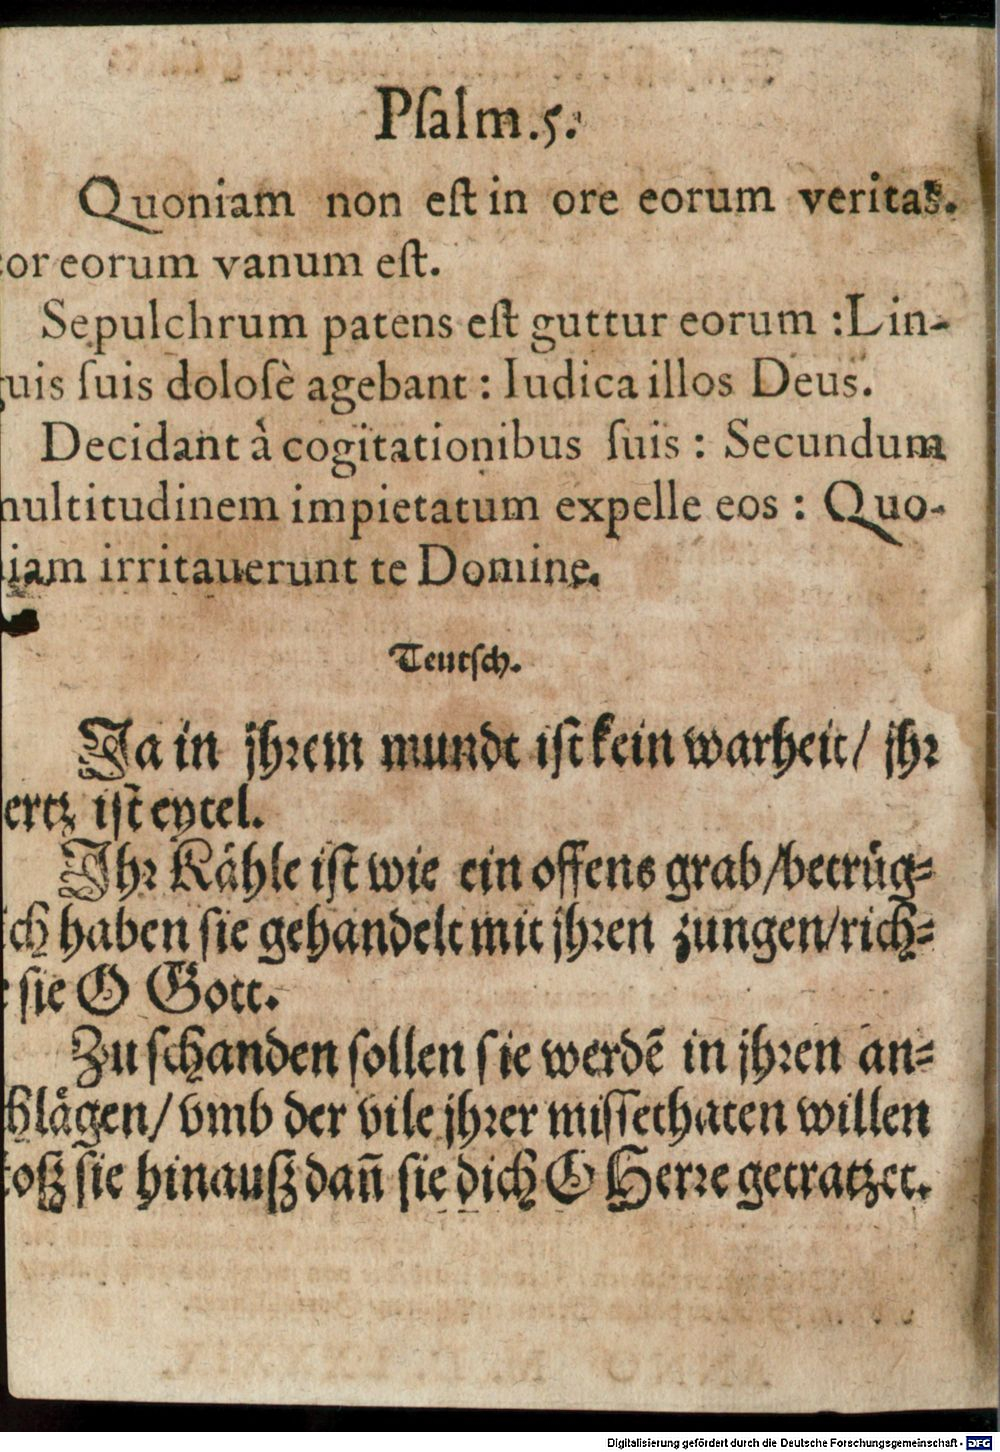 Pſalm.5.
Quoniam non eſt in ore eorum veritas.
cor eorum vanum eſt.
Sepulchrum patens eſt guttur eorum :Lin-
guis ſuis doloſè agebant : Iudica illos Deus.
Decidant à cogitationibus ſuis : Secundum
multitudinem impietatum expelle eos : Quo-
niam irritauerunt te Domine.
Teutſch.
Ja in jhrem mundt iſt kein warheit/ jhr
ertz iſt eytel.
Jhr Kähle iſt wie ein offens grab/betrüg=
ich haben ſie gehandelt mit jhren zungen/rich=
e ſie O Gott.
Zu ſchanden ſollen ſie werdē in jhren an=
ſchlägen/ vmb der vile jhrer miſſethaten willen
toſz ſie hinauſz dañ ſie dich O Herre getratzet.
Digitalisierung gefördert durch die Deutsche Forschungsgemeinschaft - DFG